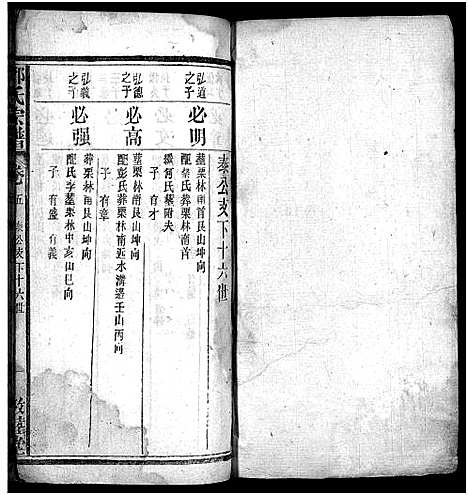 泰公支下十六世
弘道之子
必明
葬栗林南首艮山坤向
配秦氏葬栗林南首
繼何氏葬附夫
子 有才
弘德之子
必高
葬栗林南艮山坤向
配彭氏葬栗林南近水溝邊壬山丙向
子 有章
弘義之子
必强
葬栗林南艮山坤向
配氏李葬栗林中亥山巳向
子 有盛 有義
氏宗譜
卷五
泰公支下十六世
敦睦堂